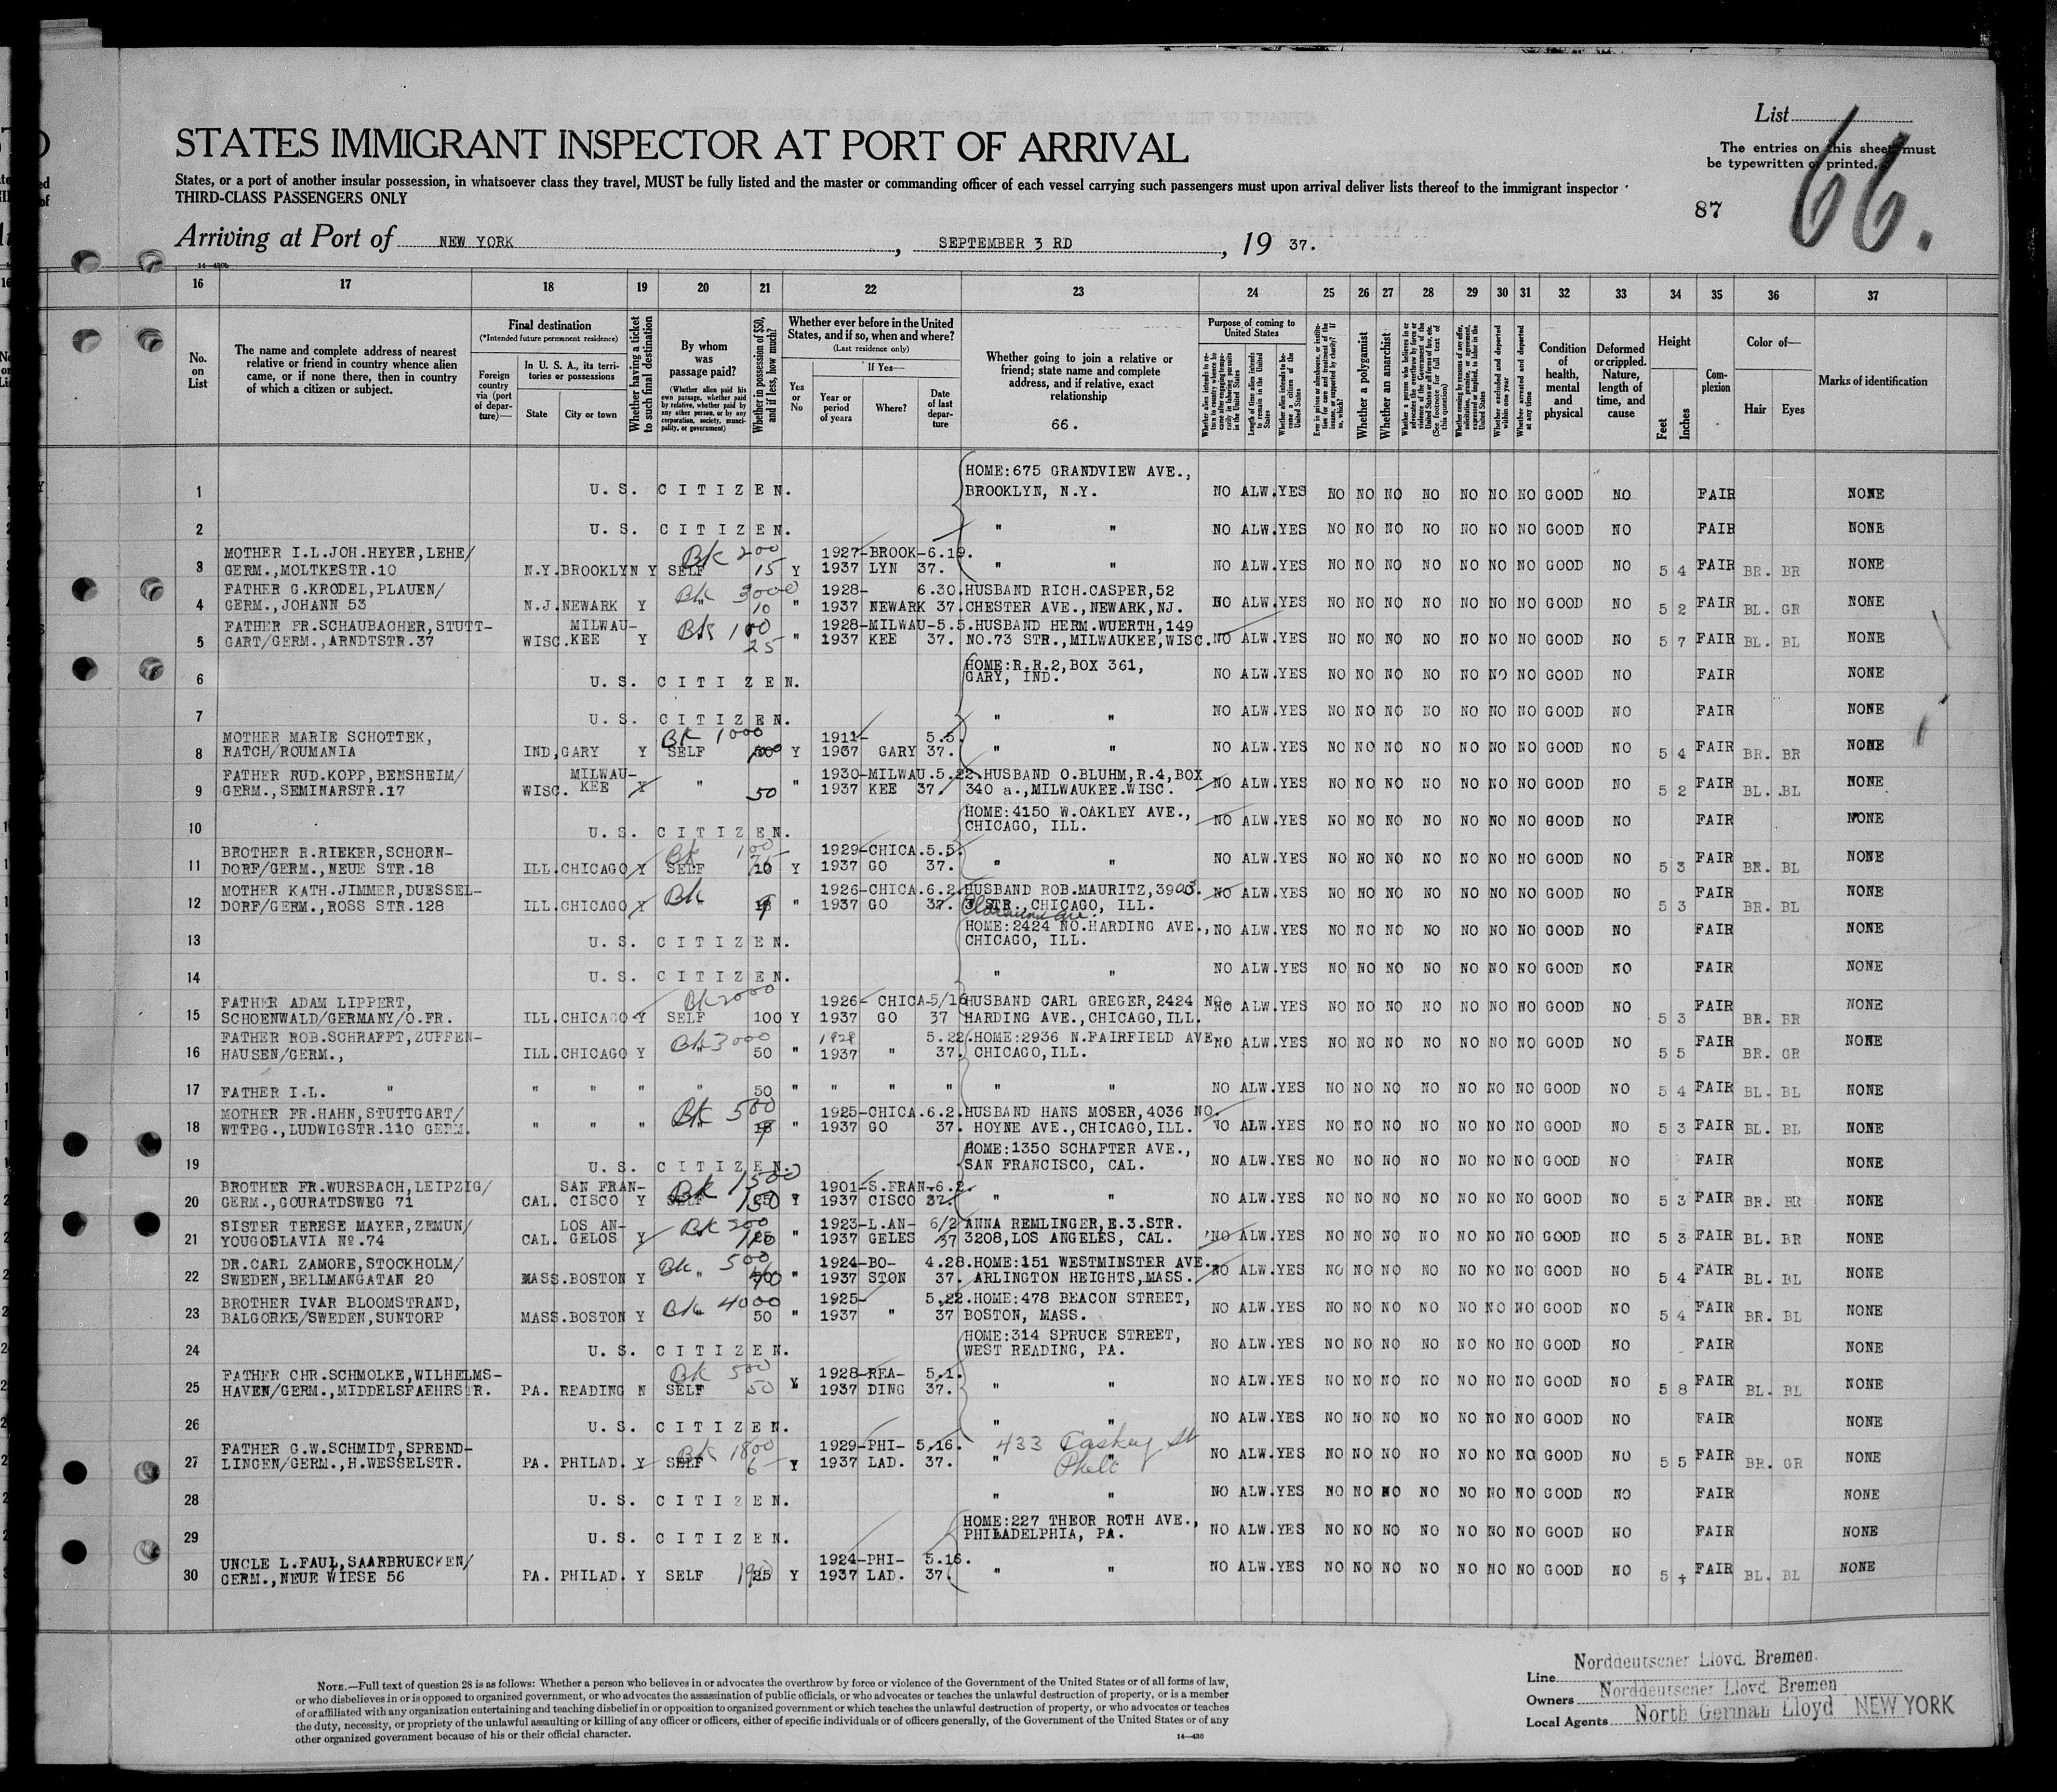 List
66.
The entries on this sheet must
be typewritten or printed.
STATES IMMIGRANT INSPECTOR AT PORT OF ARRIVAL
States, or a port of another insular possession, in whatsoever class they travel, MUST be fully listed and the master or commanding officer of each vessel carrying such passengers must upon arrival deliver lists thereof to the immigrant inspector
THIRD-CLASS PASSENGERS ONLY
87
Arriving at Port of NEW YORK, SEPTEMBER 3 RD, 19 37.
16 17 18 19 20 21 22 23 24 25 26 27 28 29 30 31 32 33 34 35 36 37
No. on List
The name and complete address of nearest relative or friend in country whence alien came, or if none there, then in country of which a citizen or subject.
Final destination
(*Intended future permanent residence)
Foreign country via (port of departure)—
In U. S. A., its territories or possessions
State
City or town
Whether having a ticket to such final destination
By whom was passage paid?
(Whether alien paid his own passage, whether paid by relative, whether paid by any other person, or by any corporation, society, municipality, or government)
Whether in possession of $50, and if less, how much?
Whether ever before in the United States, and if so, when and where?
(Last residence only)
Yes or No
If Yes—
Year or period of years
Where?
Date of last departure
Whether going to join a relative or friend; state name and complete address, and if relative, exact relationship
66.
Purpose of coming to United States
Whether a polygamist
Whether an anarchist
Condition of health, mental and physical
Deformed or crippled. Nature, length of time, and cause
Height
Feet
Inches
Complexion
Color of—
Hair
Eyes
Marks of identification
HOME:675 GRANDVIEW AVE.,
1 U. S. CITIZEN. BROOKLYN, N.Y. NO ALW.YES NO NO NO NO NO NO NO GOOD NO FAIR NONE
2 U. S. CITIZEN. " " NO ALW.YES NO NO NO NO NO NO NO GOOD NO FAIR NONE
MOTHER I.L.JOH.HEYER,LEHE/ Bk 200 1927-BROOK-6.19.
3 GERM.,MOLTKESTR.10 N.Y.BROOKLYN Y SELF 15 Y 1937 LYN 37. " " NO ALW.YES NO NO NO NO NO NO NO GOOD NO 5 4 FAIR BR. BR NONE
FATHER G.KRODEL,PLAUEN/ Bk 3000 1928- 6.30.HUSBAND RICH.CASPER,52
4 GERM.,JOHANN 53 N.J.NEWARK Y " 10 " 1937 NEWARK 37.CHESTER AVE.,NEWARK,NJ. NO ALW.YES NO NO NO NO NO NO NO GOOD NO 5 2 FAIR BL. GR NONE
FATHER FR.SCHAUBACHER,STUTT- MILWAU- Bk 100 1928-MILWAU-5.5.HUSBAND HERM.WUERTH,149
5 GART/GERM.,ARNDTSTR.37 WISC.KEE Y 25 " 1937 KEE 37. NO.73 STR.,MILWAUKEE,WISC. NO ALW.YES NO NO NO NO NO NO NO GOOD NO 5 7 FAIR BL. BL NONE
HOME:R.R.2,BOX 361,
6 U. S. CITIZEN. GARY, IND. NO ALW.YES NO NO NO NO NO NO NO GOOD NO FAIR NONE
7 U. S. CITIZEN. " " NO ALW.YES NO NO NO NO NO NO NO GOOD NO FAIR NONE
MOTHER MARIE SCHOTTEK, Bk 1000 1911- 5.5.
8 RATCH/ROUMANIA IND,GARY Y SELF Y 1937 GARY 37. " " NO ALW.YES NO NO NO NO NO NO NO GOOD NO 5 4 FAIR BR. BR NONE
FATHER RUD.KOPP,BENSHEIM/ MILWAU- 1930-MILWAU.5.22.HUSBAND O.BLUHM,R.4,BOX
9 GERM.,SEMINARSTR.17 WISC. KEE Y " 50 " 1937 KEE 37. 340 a.,MILWAUKEE.WISC. NO ALW.YES NO NO NO NO NO NO NO GOOD NO 5 2 FAIR BL. BL NONE
HOME:4150 W.OAKLEY AVE.,
10 U. S. CITIZEN. CHICAGO, ILL. NO ALW.YES NO NO NO NO NO NO NO GOOD NO FAIR NONE
BROTHER R.RIEKER,SCHORN- Bk 100 1929-CHICA.5.5.
11 DORF/GERM.,NEUE STR.18 ILL.CHICAGO Y SELF Y 1937 GO 37. " " NO ALW.YES NO NO NO NO NO NO NO GOOD NO 5 3 FAIR BR. BL NONE
MOTHER KATH.JIMMER,DUESSEL- Bk 1926-CHICA.6.2.HUSBAND ROB.MAURITZ,3903.
12 DORF/GERM.,ROSS STR.128 ILL.CHICAGO Y 9 " 1937 GO 37. STR.,CHICAGO, ILL. NO ALW.YES NO NO NO NO NO NO NO GOOD NO 5 3 FAIR BR. BL NONE
HOME:2424 NO.HARDING AVE.,
13 U. S. CITIZEN. CHICAGO, ILL. NO ALW.YES NO NO NO NO NO NO NO GOOD NO FAIR NONE
14 U. S. CITIZEN. " " NO ALW.YES NO NO NO NO NO NO NO GOOD NO FAIR NONE
FATHER ADAM LIPPERT, Bk 2000 1926- CHICA-5/16 HUSBAND CARL GREGER,2424 NO.
15 SCHOENWALD/GERMANY/O.FR. ILL.CHICAGO Y SELF 100 Y 1937 GO 37 HARDING AVE.,CHICAGO,ILL. NO ALW.YES NO NO NO NO NO NO NO GOOD NO 5 3 FAIR BR. BR NONE
FATHER ROB.SCHRAFFT,ZUFFEN- Bk 3000 5.22.HOME:2936 N.FAIRFIELD AVE.
16 HAUSEN/GERM., ILL.CHICAGO Y " 50 " 1937 " 37. CHICAGO,ILL. NO ALW.YES NO NO NO NO NO NO NO GOOD NO 5 5 FAIR BR. GR NONE
17 FATHER I.L. " " " " " 50 " " " " " " NO ALW.YES NO NO NO NO NO NO NO GOOD NO 5 4 FAIR BL. BL NONE
MOTHER FR.HAHN,STUTTGART/ Bk 500 1925-CHICA.6.2.HUSBAND HANS MOSER,4036 NO.
18 WTTBG.,LUDWIGSTR.110 GERM. " " " " " 1937 GO 37. HOYNE AVE.,CHICAGO,ILL. NO ALW.YES NO NO NO NO NO NO NO GOOD NO 5 3 FAIR BL. BL NONE
HOME:1350 SCHAFTER AVE.,
19 U. S. CITIZEN. SAN FRANCISCO, CAL. NO ALW.YES NO NO NO NO NO NO NO GOOD NO FAIR NONE
BROTHER FR.WURSBACH,LEIPZIG/ SAN FRAN- Bk 1500 1901-S.FRAN-6.2.
20 GERM.,GOURATDSWEG 71 CAL. CISCO Y SELF 150 Y 1937 CISCO 37. " " NO ALW.YES NO NO NO NO NO NO NO GOOD NO 5 3 FAIR BR. BR NONE
SISTER TERESE MAYER,ZEMUN/ LOS AN- Bk 200 1923-L.AN- 6/2 ANNA REMLINGER,E.3.STR.
21 YOUGOSLAVIA No.74 CAL. GELOS Y " 1937 GELES 37 3208,LOS ANGELES, CAL. NO ALW.YES NO NO NO NO NO NO NO GOOD NO 5 3 FAIR BL. BR NONE
DR.CARL ZAMORE,STOCKHOLM/ Bk 500 1924-BO- 4.28.HOME:151 WESTMINSTER AVE.
22 SWEDEN,BELLMANGATAN 20 MASS.BOSTON Y " " 1937 STON 37. ARLINGTON HEIGHTS,MASS. NO ALW.YES NO NO NO NO NO NO NO GOOD NO 5 4 FAIR BL. BL NONE
BROTHER IVAR BLOOMSTRAND, Bk 4000 1925- 5.22.HOME:478 BEACON STREET,
23 BALGORKE/SWEDEN,SUNTORP MASS.BOSTON Y 50 " 1937 " 37 BOSTON, MASS. NO ALW.YES NO NO NO NO NO NO NO GOOD NO 5 4 FAIR BR. BL NONE
HOME:314 SPRUCE STREET,
24 U. S. CITIZEN. WEST READING, PA. NO ALW.YES NO NO NO NO NO NO NO GOOD NO FAIR NONE
FATHER CHR.SCHMOLKE,WILHELMS- Bk 500 1928-REA- 5.1.
25 HAVEN/GERM.,MIDDELSFAEHRSTR. PA. READING N SELF 50 Y 1937 DING 37. " " NO ALW.YES NO NO NO NO NO NO NO GOOD NO 5 8 FAIR BL. BL NONE
26 U. S. CITIZEN. " " NO ALW.YES NO NO NO NO NO NO NO GOOD NO FAIR NONE
FATHER G.W.SCHMIDT,SPREND- Bk 1800 1929-PHI- 5.16. 433 St
27 LINGEN/GERM.,H.WESSELSTR. PA. PHILAD. Y SELF 6 Y 1937 LAD. 37. " " NO ALW.YES NO NO NO NO NO NO NO GOOD NO 5 5 FAIR BR. GR NONE
28 U. S. CITIZEN. " " NO ALW.YES NO NO NO NO NO NO NO GOOD NO FAIR NONE
HOME:227 THEOR ROTH AVE.,
29 U. S. CITIZEN. PHILADELPHIA, PA. NO ALW.YES NO NO NO NO NO NO NO GOOD NO FAIR NONE
UNCLE L.FAUL,SAARBRUECKEN/ 1924-PHI- 5.16.
30 GERM.,NEUE WIESE 56 PA. PHILAD. Y SELF Y 1937 LAD. 37. " " NO ALW.YES NO NO NO NO NO NO NO GOOD NO 5 FAIR BL. BL NONE
NOTE.—Full text of question 28 is as follows: Whether a person who believes in or advocates the overthrow by force or violence of the Government of the United States or of all forms of law,
or who disbelieves in or is opposed to organized government, or who advocates the assassination of public officials, or who advocates or teaches the unlawful destruction of property, or is a member
of or affiliated with any organization entertaining and teaching disbelief in or opposition to organized government or which teaches the unlawful destruction of property, or who advocates or teaches
the duty, necessity, or propriety of the unlawful assaulting or killing of any officer or officers, either of specific individuals or of officers generally, of the Government of the United States or of any
other organized government because of his or their official character.
14—430
Line Norddeutscher Lloyd. Bremen.
Owners Norddeutscher Lloyd. Bremen
Local Agents North German Lloyd NEW YORK